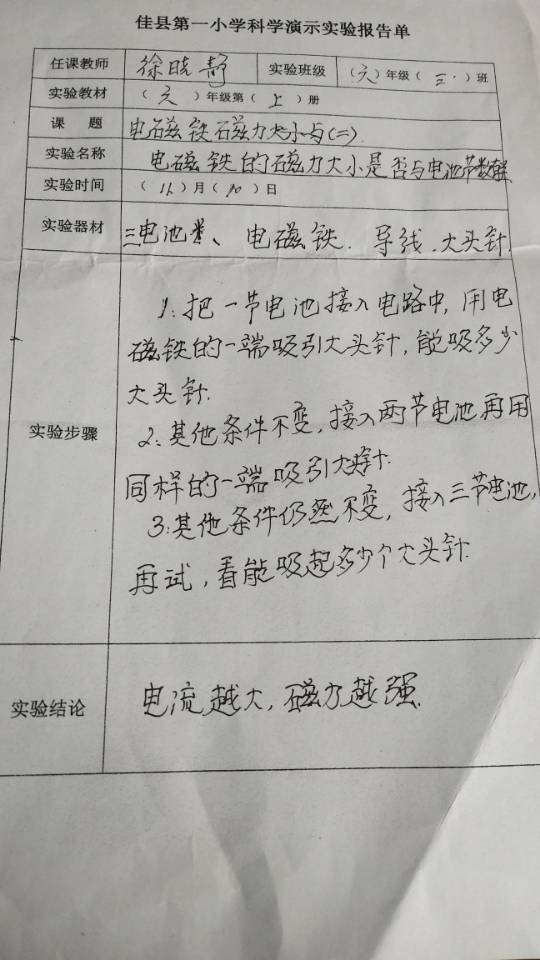 佳县第一小学科学演示实验报告单
任课教师 徐晓静 实验班级 （六）年级（三）班
实验教材 （六）年级第（上）册
课 题 电磁铁磁力大小与(二)
实验名称 电磁铁的磁力大小是否与电池节数
实验时间 （11）月（10）日
实验器材 三电池、电磁铁.导线.大头针
1:把一节电池接入电路中,用电
磁铁的一端吸引大头针,能吸多少
大头针.
实验步骤
2:其他条件不变,接入两节电池再用
同样的一端吸引大头针.
3:其他条件仍然不变,接入三节电池,
再试,看能吸起多少个大头针
实验结论 电流越大,磁力越强.